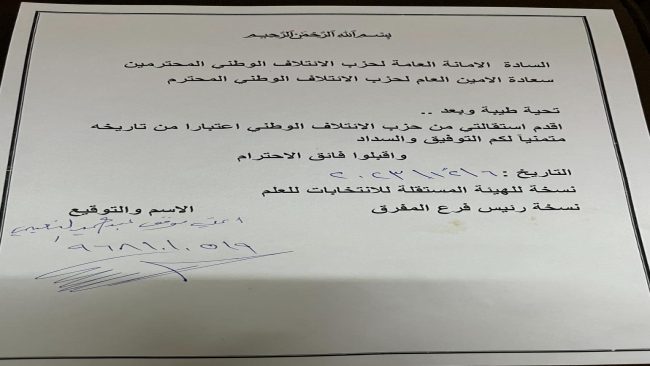 بسم الله الرحمن الرحيم
السادة الامانة العامة لحزب الائتلاف الوطني المحترمين
سعادة الامين العام لحزب الائتلاف الوطني المحترم
تحية طيبة وبعد ..
اقدم استقالتي من حزب الائتلاف الوطني اعتبارا من تاريخه
متمنياً لكم التوفيق والسداد
واقبلوا فائق الاحترام
التاريخ :
نسخة للهيئة المستقلة للانتخابات للعلم
نسخة رئيس فرع المفرق
الاسم والتوقيع